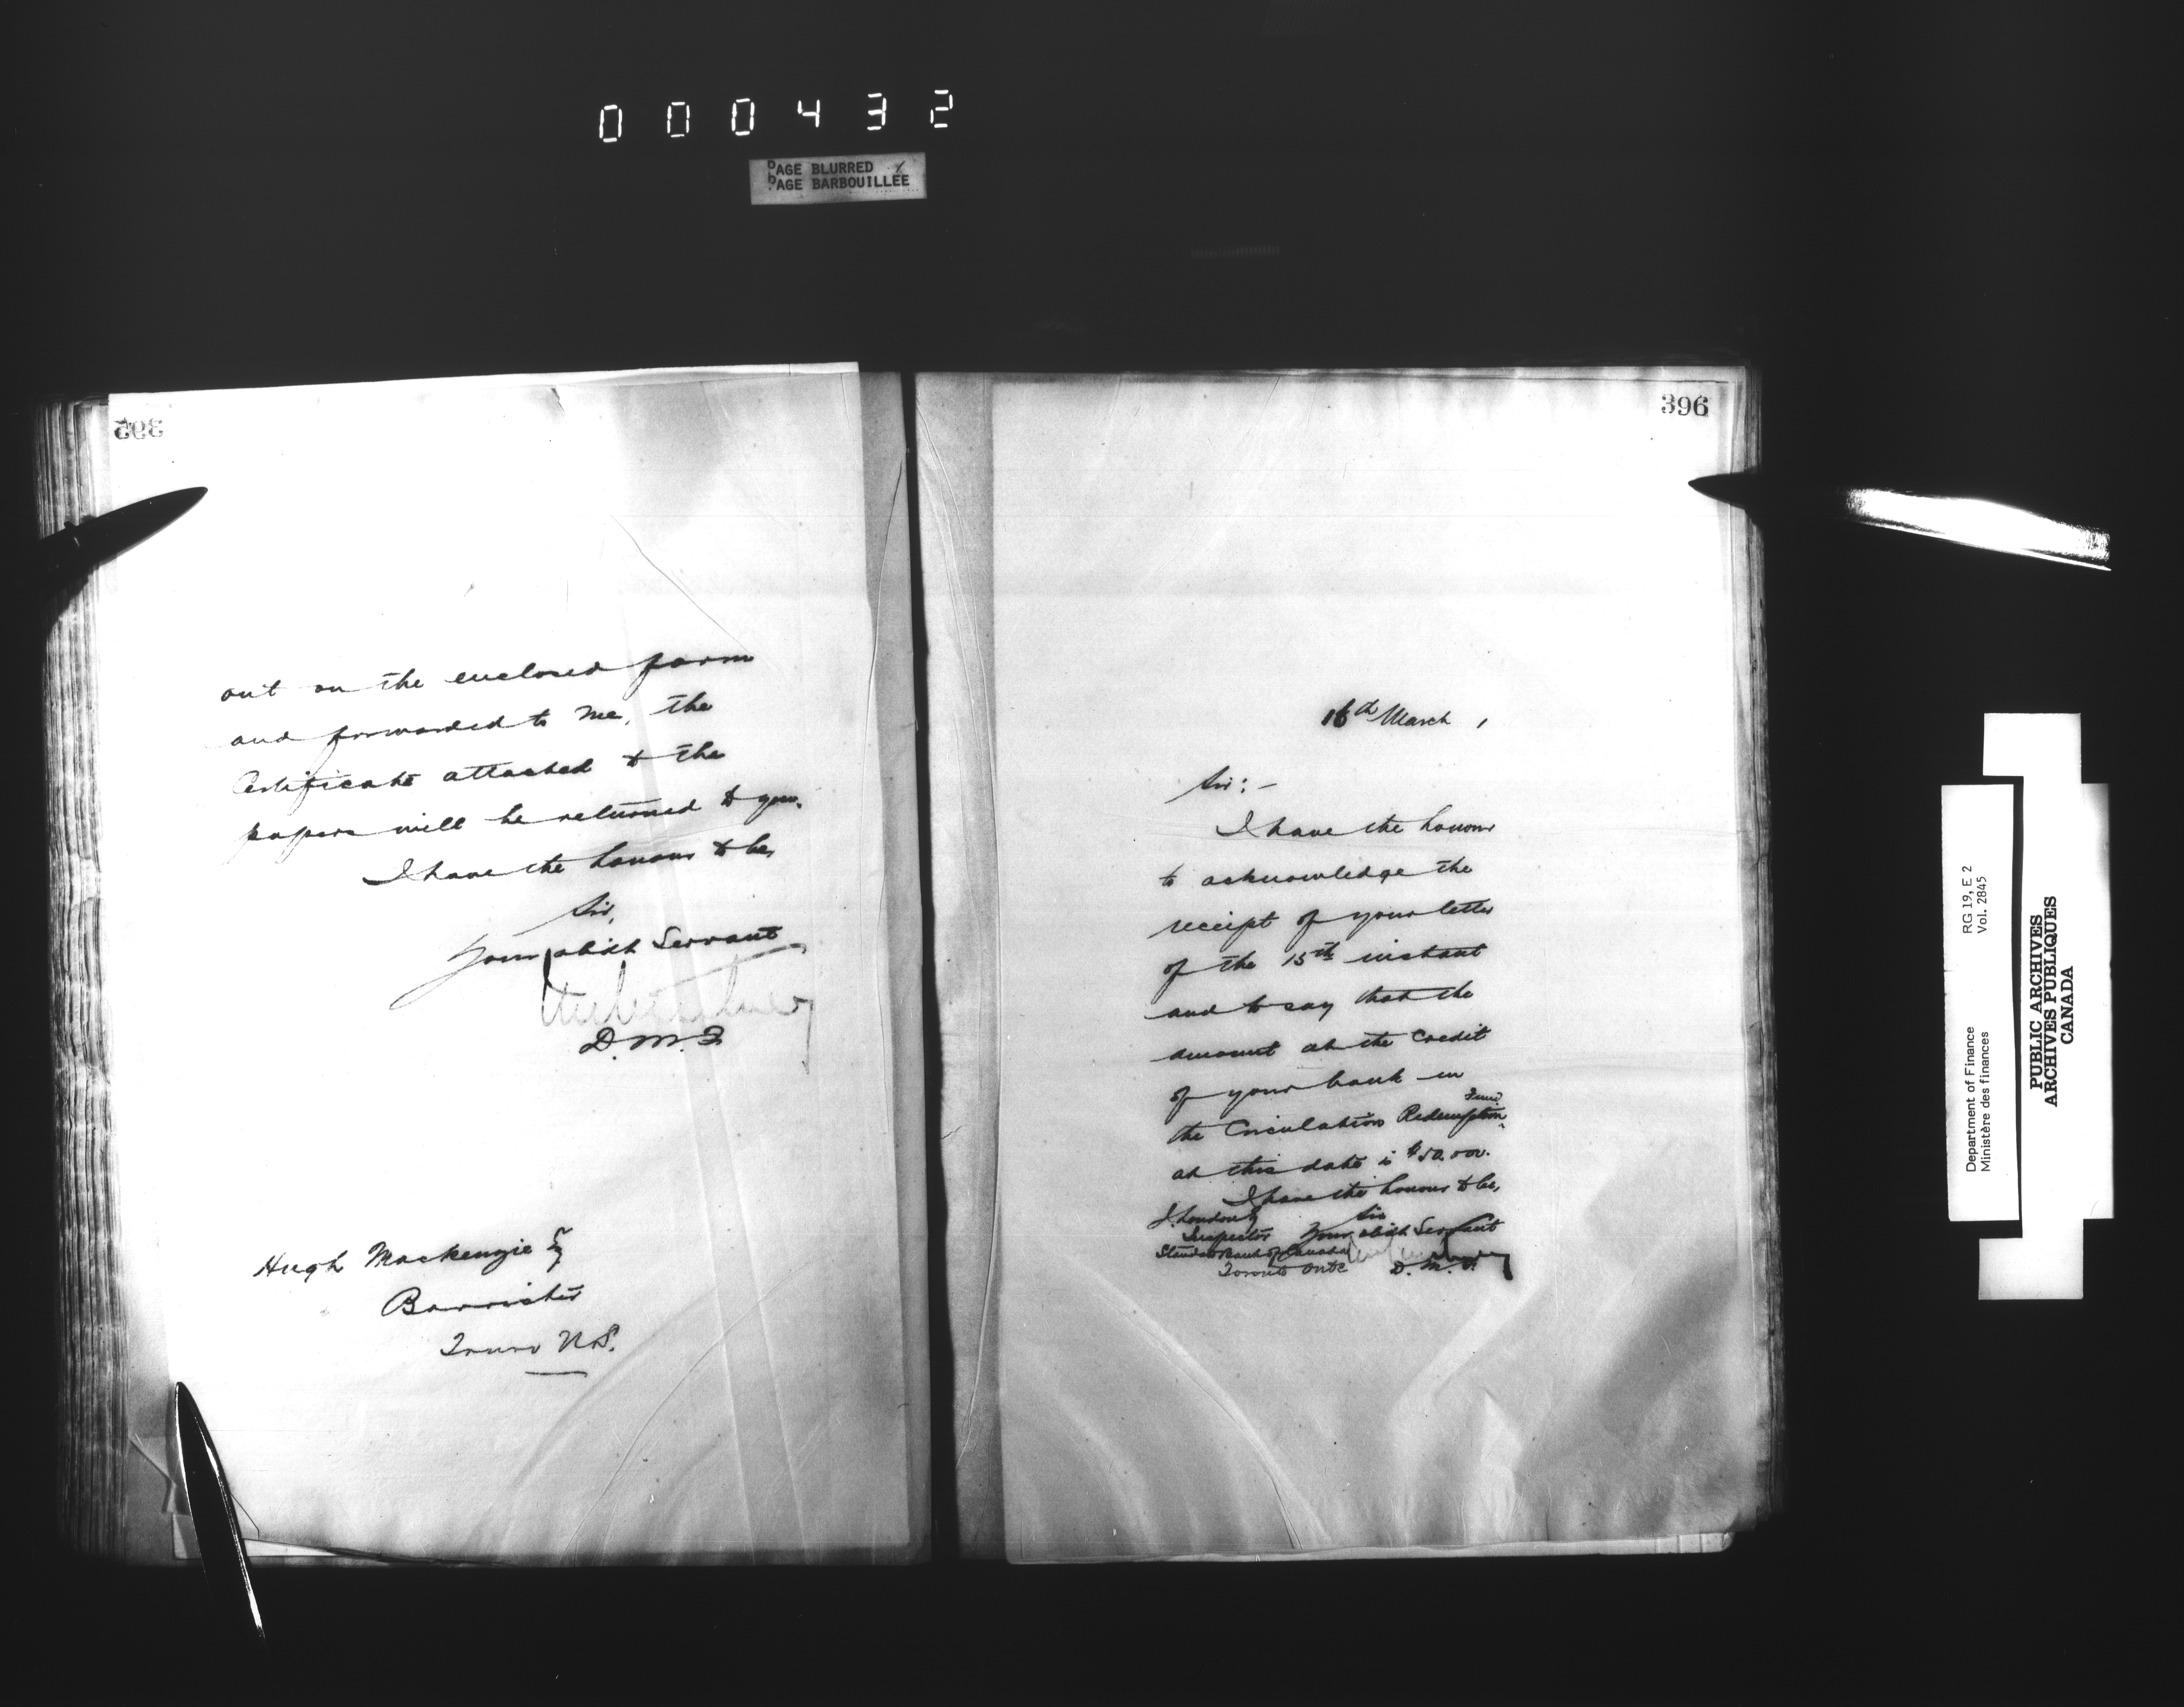 000432
PAGE BLURRED
PAGE BARBOUILLEE
395
out on the enclosed form
and forwarded to me, the
Certificate attached to the
papers will be returned to you.
I have the honour to be,
Sir,
Your obdt Servant
D.M.F.
Hugh Mackenzie Esq
Barrister
Truro N.S.
396
16th March
Sir:-
I have the honour
to acknowledge the
receipt of your letter
of the 15th instant
and to say that the
amount at the Credit
of your bank in
the Circulation Redemption Fund
at this date is $50,000.
I have the honour to be,
Sir
Your obdt Servant
D.M.F.
Inspector
Standard Bank of Canada
Toronto Ont
Department of Finance
Ministère des finances
RG 19, E 2
Vol. 2845
PUBLIC ARCHIVES
ARCHIVES PUBLIQUES
CANADA